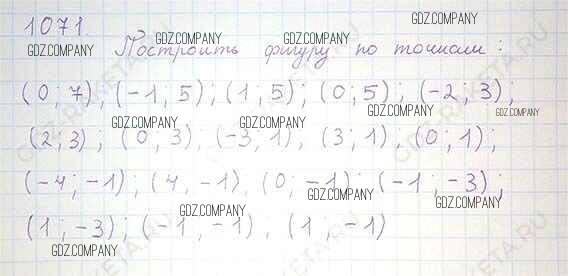 1071.
Построить фигуру по точкам:
(0; 7); (-1; 5); (1; 5); (0; 5); (-2; 3);
(2; 3); (0; 3); (-3; 1), (3; 1), (0; 1);
(-4; -1); (4, -1), (0; -1); (-1; -3);
(1; -3); (-1; -1); (1; -1)
GDZ.COMPANY
GDZ.COMPANY
GDZ.COMPANY
GDZ.COMPANY
GDZ.COMPANY
GDZ.COMPANY
GDZ.COMPANY
GDZ.COMPANY
GDZ.COMPANY
GDZ.COMPANY
GDZ.COMPANY
GDZ.COMPANY